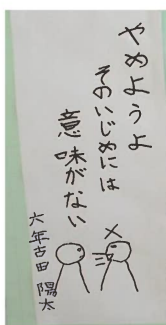 やめようよ
そのいじめには
意味がない
六年古田陽太